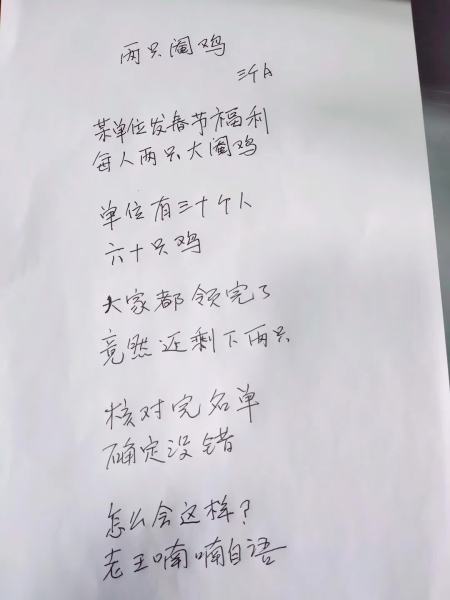 两只阉鸡
三个人
某单位发春节福利
每人两只大阉鸡
单位有三十个人
六十只鸡
大家都领完了
竟然还剩下两只
核对完名单
确定没错
怎么会这样?
老王喃喃自语